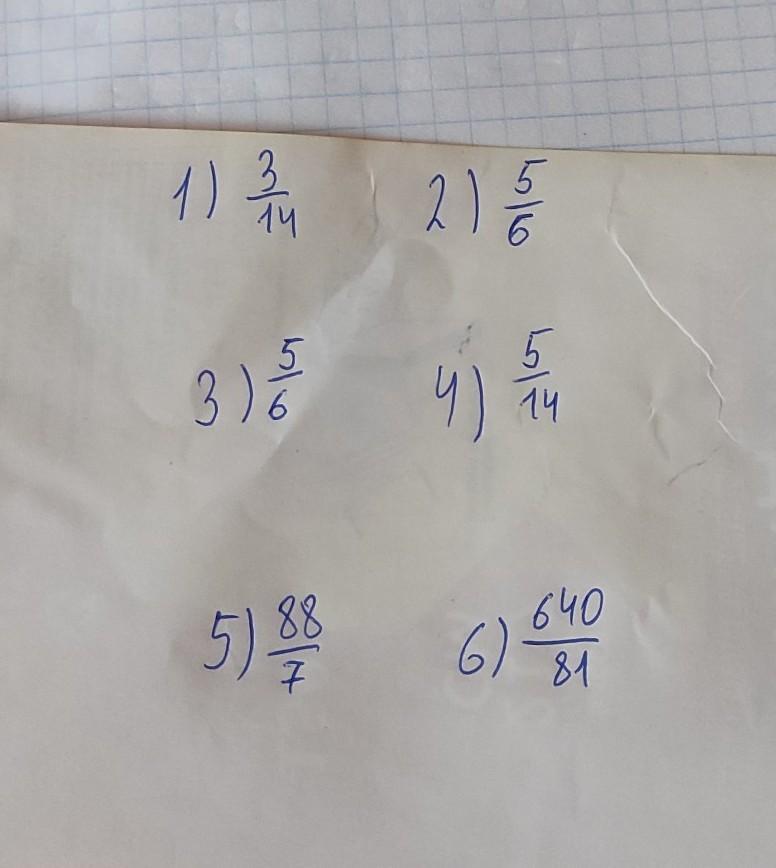 1) 3/14 2) 5/6
3) 5/6 4) 5/14
5) 88/7 6) 640/81